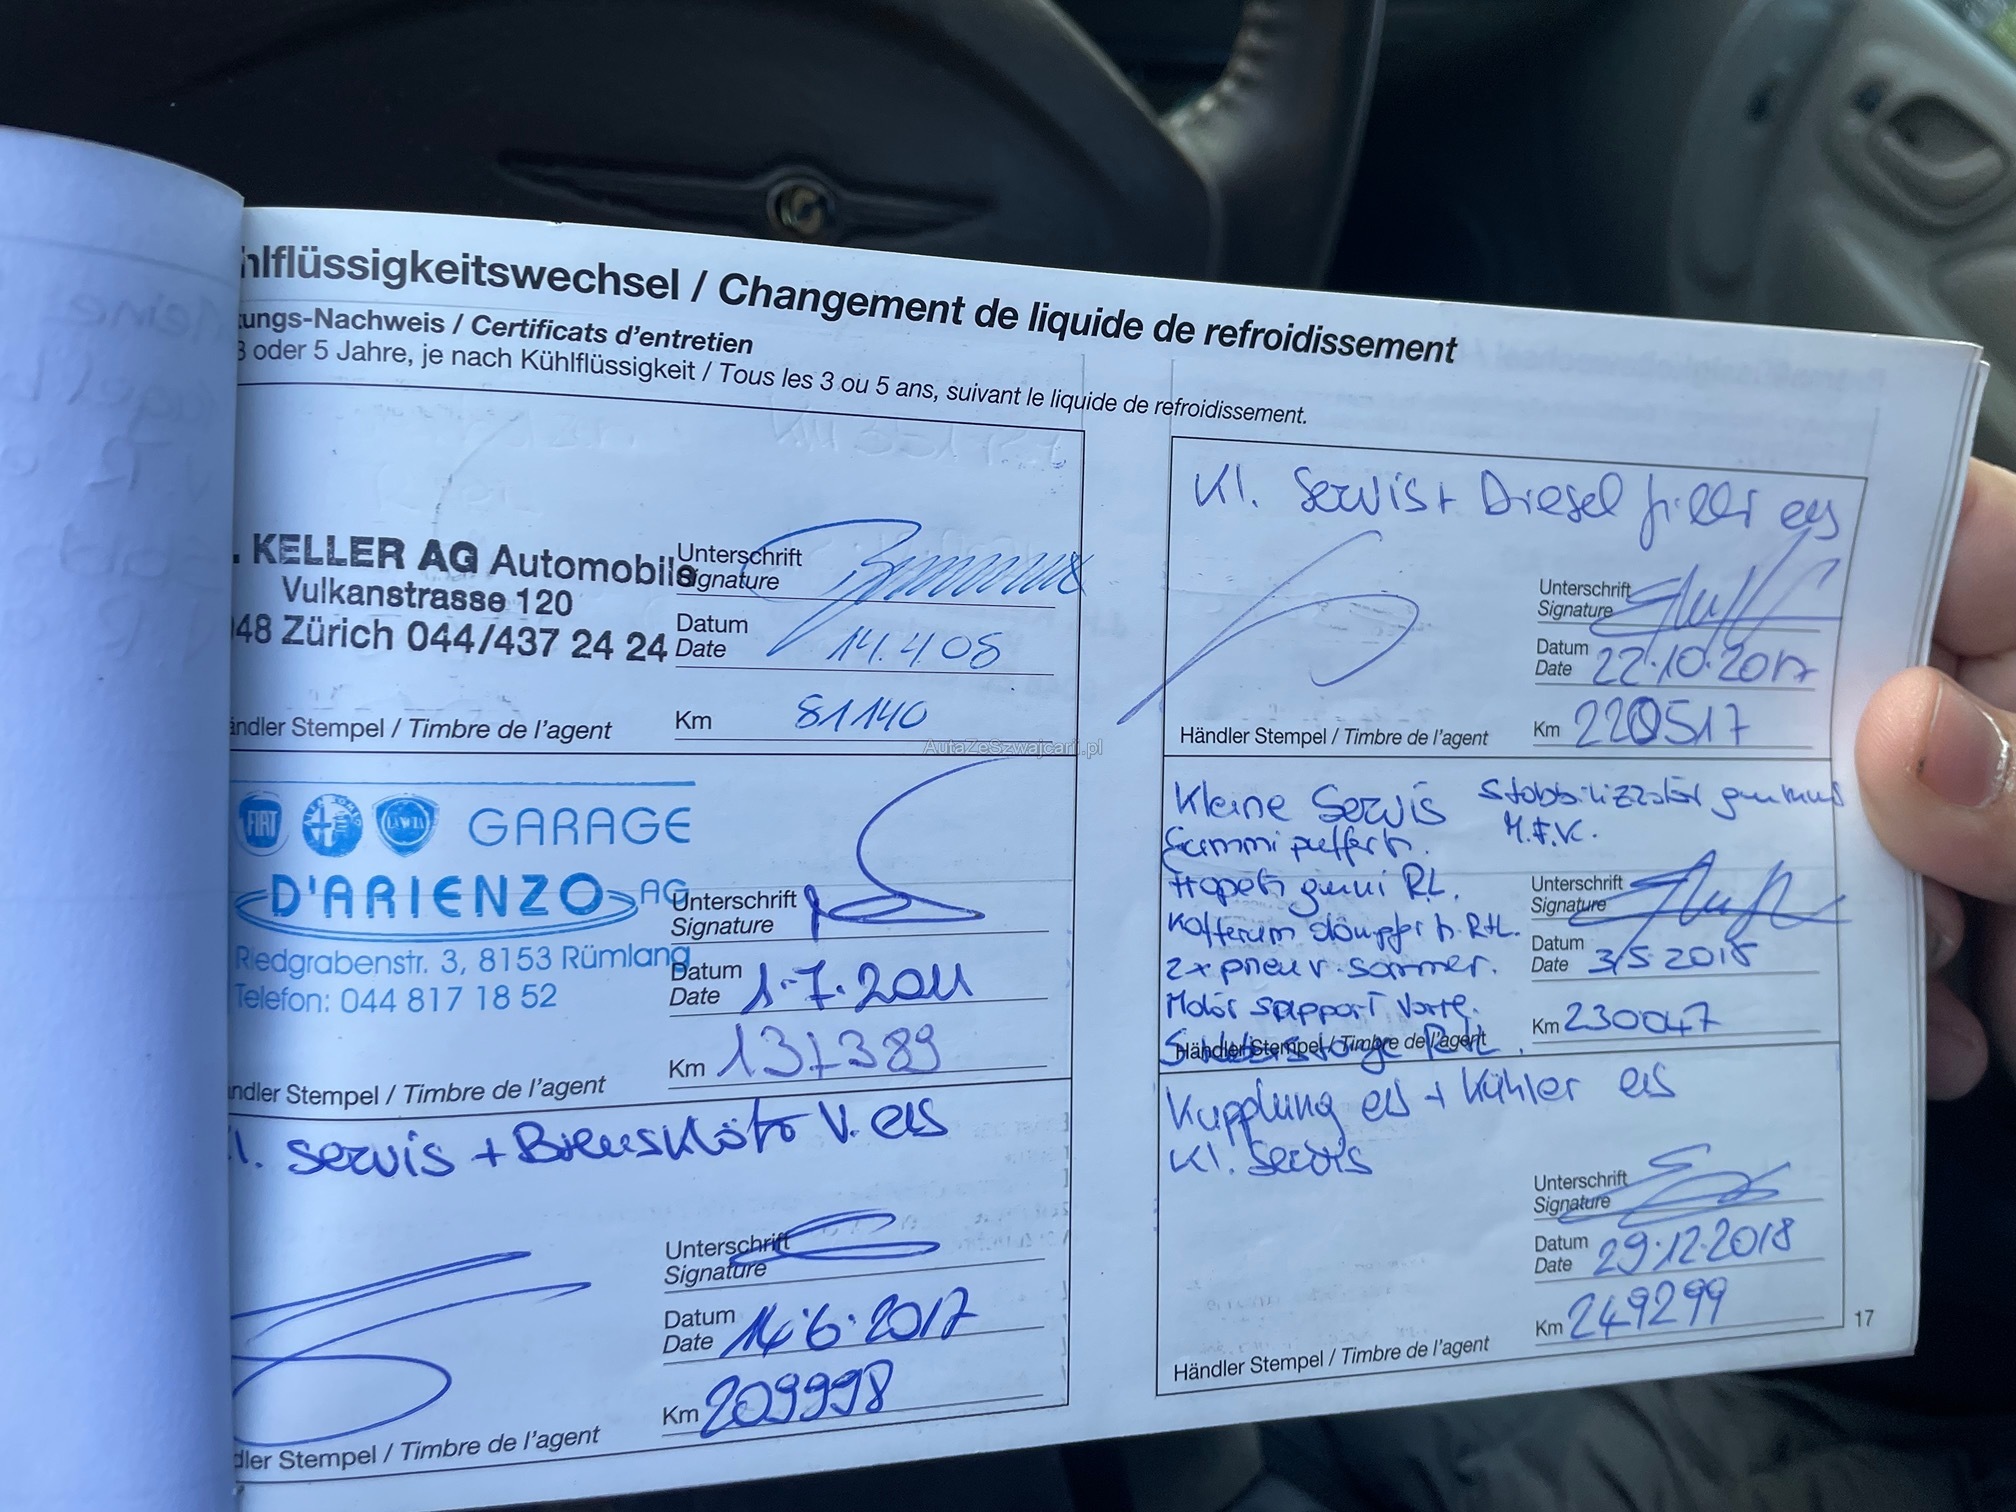 hlflüssigkeitswechsel / Changement de liquide de refroidissement
tungs-Nachweis / Certificats d'entretien
3 oder 5 Jahre, je nach Kühlflüssigkeit / Tous les 3 ou 5 ans, suivant le liquide de refroidissement.
. KELLER AG Automobile
Vulkanstrasse 120
048 Zürich 044/437 24 24
Unterschrift
Signature
Datum
Date 14.4.08
Km 81140
ändler Stempel / Timbre de l'agent
FIAT LANCIA GARAGE
D'ARIENZO AG
Riedgrabenstr. 3, 8153 Rümlang
Telefon: 044 817 18 52
Unterschrift
Signature
Datum
Date 1.7.2011
Km 137389
ändler Stempel / Timbre de l'agent
Kl. Servis + Bremsklötz V. ers
Unterschrift
Signature
Datum
Date 14.6.2017
Km 209998
dler Stempel / Timbre de l'agent
Kl. Servis + Diesel filter ers
Unterschrift
Signature
Datum
Date 22.10.2017
Km 220517
Händler Stempel / Timbre de l'agent
Kleine Servis
Stabbilizzator gummis
M.F.K.
Gummi puffer h.
gumi R.L.
Kofferum dämpfer h. R+L.
2x pneu v. sommer.
Motor support Vorte.
R+L
Unterschrift
Signature
Datum
Date 3/5 2018
Km 230047
Händler Stempel / Timbre de l'agent
Kupplung ers + Kühler ers
Kl. Servis
Unterschrift
Signature
Datum
Date 29.12.2018
Km 249299
Händler Stempel / Timbre de l'agent
17
AutaZeSzwajcarii.pl